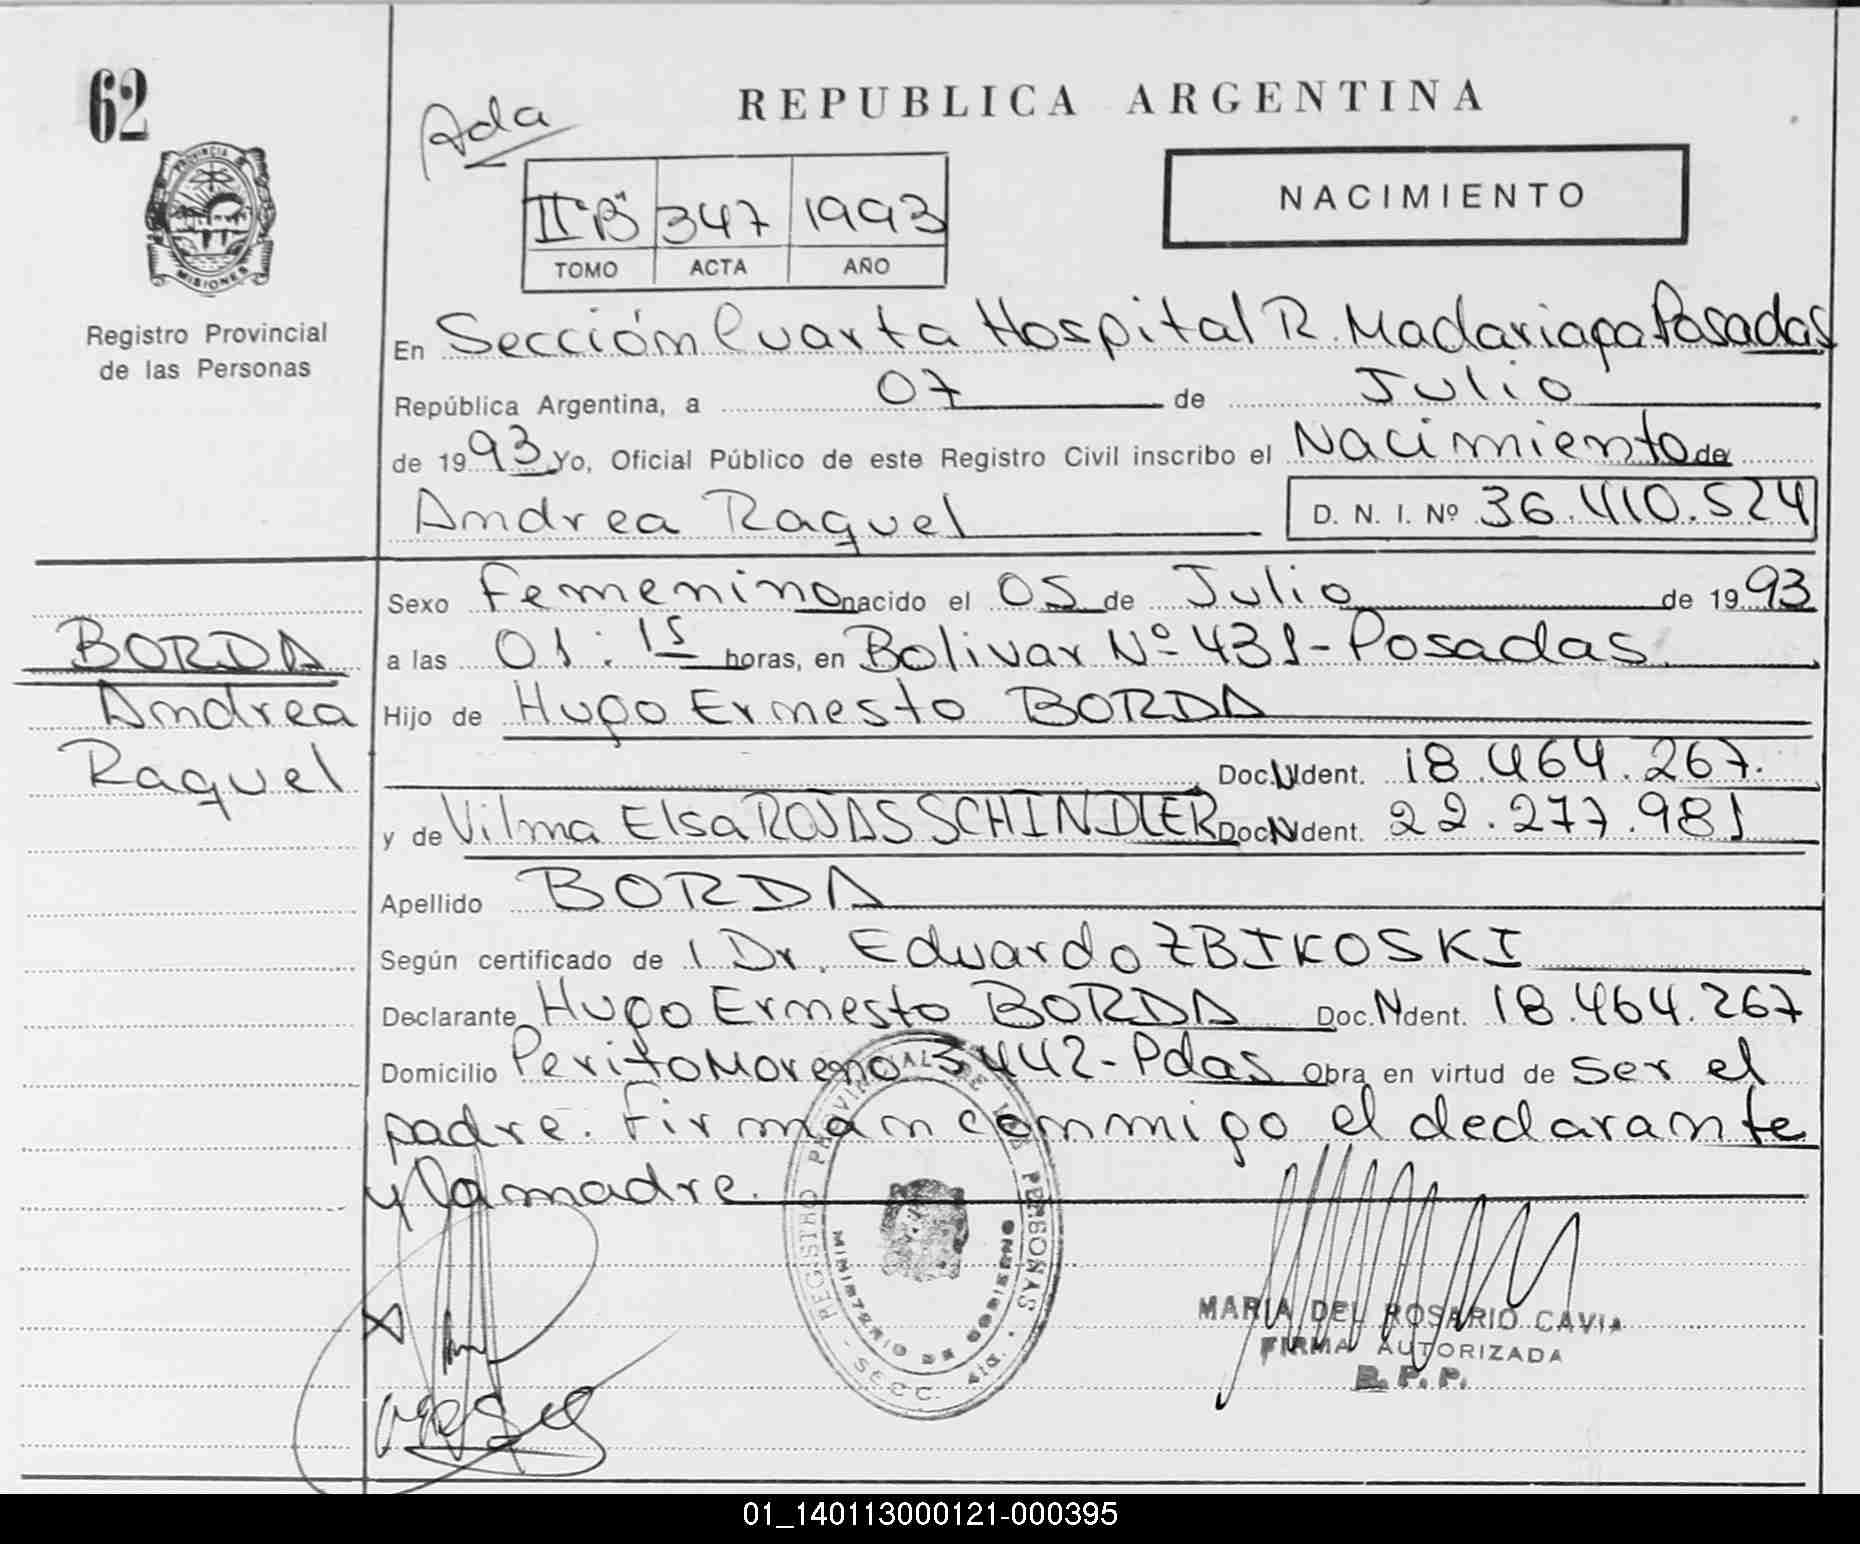 62
Ada
REPUBLICA ARGENTINA
NACIMIENTO
II "B" 347 1993
TOMO ACTA AÑO
PROVINCIA DE
MISIONES
Registro Provincial
de las Personas
En Sección Cuarta Hospital R. Madariaga Posadas
República Argentina, a 07 de Julio
de 1993 Yo, Oficial Público de este Registro Civil inscribo el Nacimiento de
Andrea Raquel D. N. I. Nº 36.410.524
Sexo Femenino nacido el 05 de Julio de 1993
a las 01:15 horas, en Bolivar Nº 431-Posadas.
BORDA
Andrea
Raquel
Hijo de Hugo Ernesto BORDA
Doc. N Ident. 18.464.267.
y de Vilma Elsa ROJAS SCHINDLER Doc. N Ident. 22.277.981
Apellido BORDA
Según certificado de l Dr. Eduardo ZBIKOSKI
Declarante Hugo Ernesto BORDA Doc. N Ident. 18.464.267
Domicilio Perito Moreno 3442-Pdas Obra en virtud de ser el
padre. Firman conmigo el declarante
y la madre.
REGISTRO PROVINCIAL DE LAS PERSONAS
MINISTERIO DE GOBIERNO
SECC. 4ta.
MARIA DEL ROSARIO CAVIA
FIRMA AUTORIZADA
R. P. P.
01_140113000121-000395